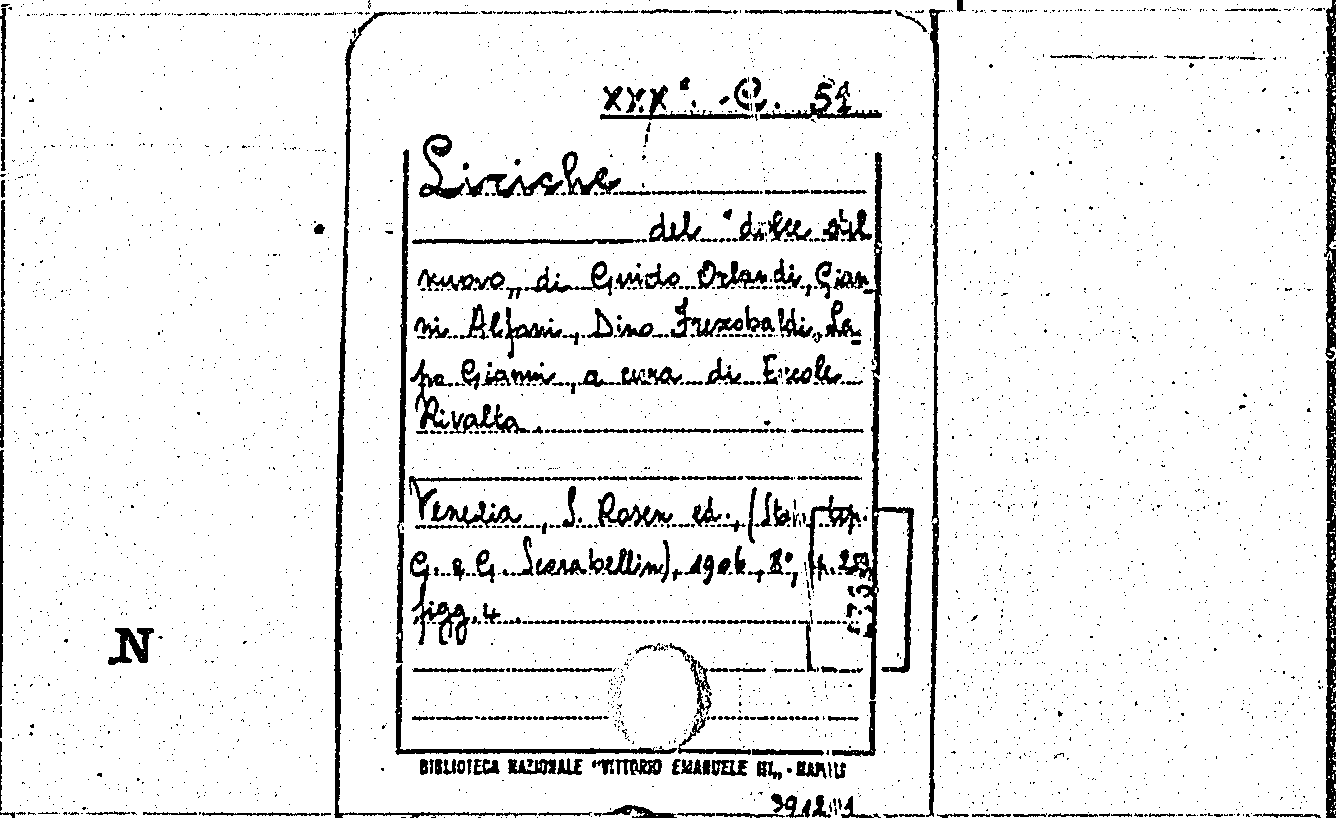 XXXª. - C. 52
Liriche
del "dolce stil
nuovo„ di Guido Orlandi, Gian-
ni Alfani, Dino Frescobaldi, La-
po Gianni, a cura di Ercole
Rivalta.
Venezia, S. Rosen ed., (Stab. tip.
G. & G. Scarabellin), 1906, 8°, p.
figg. 4.
N
BIBLIOTECA NAZIONALE "VITTORIO EMANUELE III„ - NAPOLI